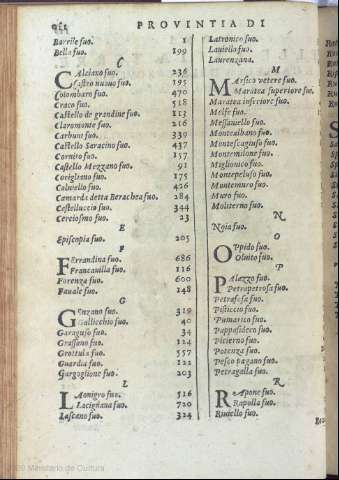 PROVINTIA DI
Barrile fuo. 1
Bella fuo. 199
C
Calciano fuo. 236
Castro nuouo fuo. 195
Colombaro fuo. 470
Craco fuo. 518
Castello de grandine fuo. 113
Claromonte fuo. 216
Carbuni fuo. 339
Castello Saracino fuo. 437
Corniro fuo. 157
Castello Mezzano fuo. 91
Corigliano fuo. 175
Caluello fuo. 426
Camarda detta Beracbea fuo. 284
Castelluccio fuo. 344
Cerciosmo fuo. 23
E
Episcopia fuo. 205
F
Ferrandina fuo. 686
Francauilla fuo. 116
Forenza fuo. 600
Fauale fuo. 148
G
Genzano fuo. 319
Gallicchio fuo. 40
Garaguso fuo. 34
Grassano fuo. 124
Grottula fuo. 557
Guardia fuo. 122
Gorgoglione fuo. 203
L
Lauonigro fuo. 516
Lacigñana fuo. 720
Lascano fuo. 324
Latronico fuo.
Lauiello fuo.
Laurenzana.
M
Marsico vetere fuo.
Maratea superiore fuo.
Maratea inferiore fuo.
Melfe fuo.
Messaniello fuo.
Montealbano fuo.
Montescaguso fuo.
Montemilone fuo.
Miglionico fuo.
Montepeluso fuo.
Montemuro fuo.
Muro fuo.
Moliterno fuo.
N
Noia fuo.
O
Oppido fuo.
Oliuito fuo.
P
Palazzo fuo.
Petrapetrosa fuo.
Petrafesa fuo.
Pisticcio fuo.
Pumarico fuo.
Pappasidero fuo.
Picierno fuo.
Potenza fuo.
Pesco pagano fuo.
Petragalla fuo.
R
Reapone fuo.
Rapolla fuo.
Riuiello fuo.
Ministerio de Cultura